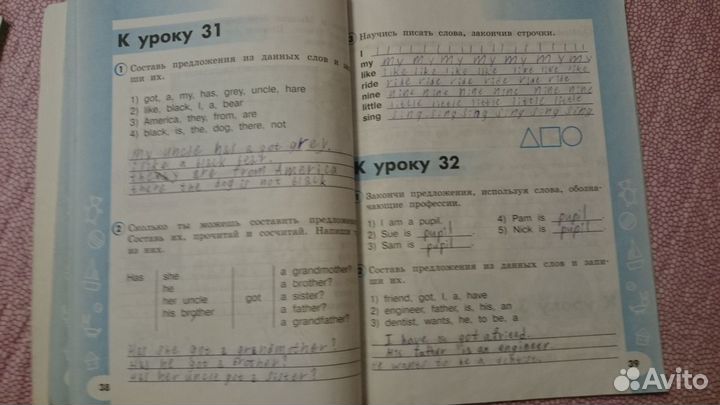 К уроку 31
1 Составь предложения из данных слов и
ши их.
1) got, a, my, has, grey, uncle, hare
2) like, black, I, a, bear
3) America, they, from, are
4) black, is, the, dog, there, not
My uncle has a got grey.
I like a black bear.
they are from America
there the dog is not black
2 Сколько ты можешь составить предложен
Составь их, прочитай и сосчитай. Напиши
из них.
Has she got a grandmother?
he a brother?
her uncle a sister?
his brother a father?
a grandfather?
Has she got a grandmother?
Has he got a brother?
Has her uncle got a sister?
38
Научись писать слова, закончив строчки.
I I I I I I I I I I I I
my my my my my my my my
like like like like like like
ride ride ride ride ride ride
nine nine nine nine nine nine
little little little little little
sing sing sing sing sing sing sing
К уроку 32
Закончи предложения, используя слова, обозна-
чающие профессии.
1) I am a pupil.
2) Sue is pupil.
3) Sam is pupil.
4) Pam is pupil.
5) Nick is pupil.
Составь предложения из данных слов и запи-
ши их.
1) friend, got, I, a, have
2) engineer, father, is, his, an
3) dentist, wants, he, to be, a
I have a got a friend.
His father is an engineer
he wants to be a dentist.
39
Avito